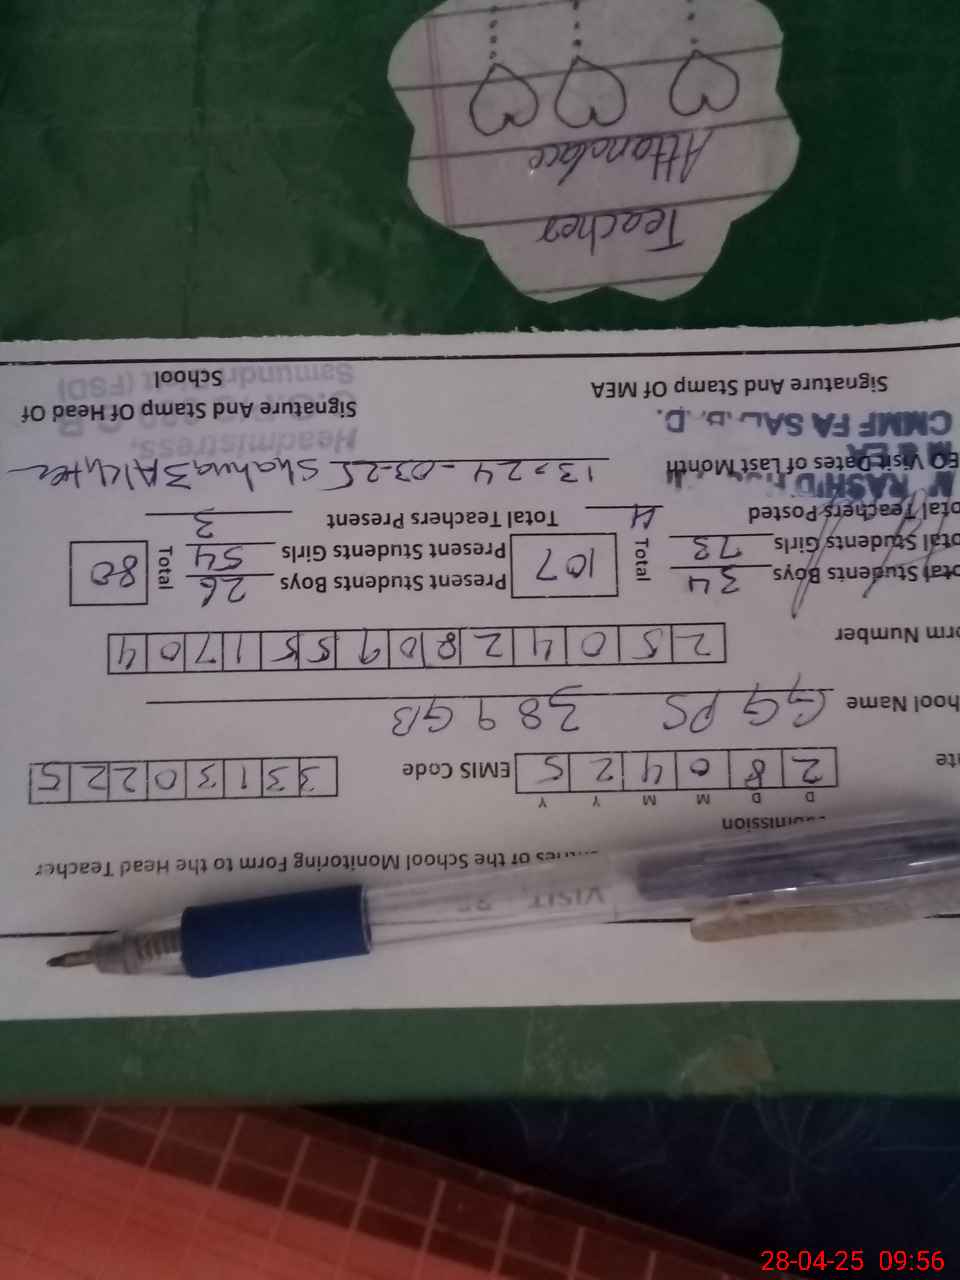 VISIT
ntries of the School Monitoring Form to the Head Teacher
mission
D D M M Y Y
te 2 8 0 4 2 5 EMIS Code 3 3 1 3 0 2 2 5
hool Name GGPS 389 GB
orm Number 2 5 0 4 2 8 0 9 5 5 1 7 0 4
otal Students Boys 34 Total 107 Present Students Boys 26 Total 80
otal Students Girls 73 Present Students Girls 54
otal Teachers Posted 4 Total Teachers Present 3
EO Visit Dates of Last Month 13-24-03-25
M RASHID
M&EA
CMMF FA SAL B D.
Headmistress,
Samundri (FSD)
Signature And Stamp Of MEA Signature And Stamp Of Head Of
School
Teacher
Attandace
28-04-25 09:56